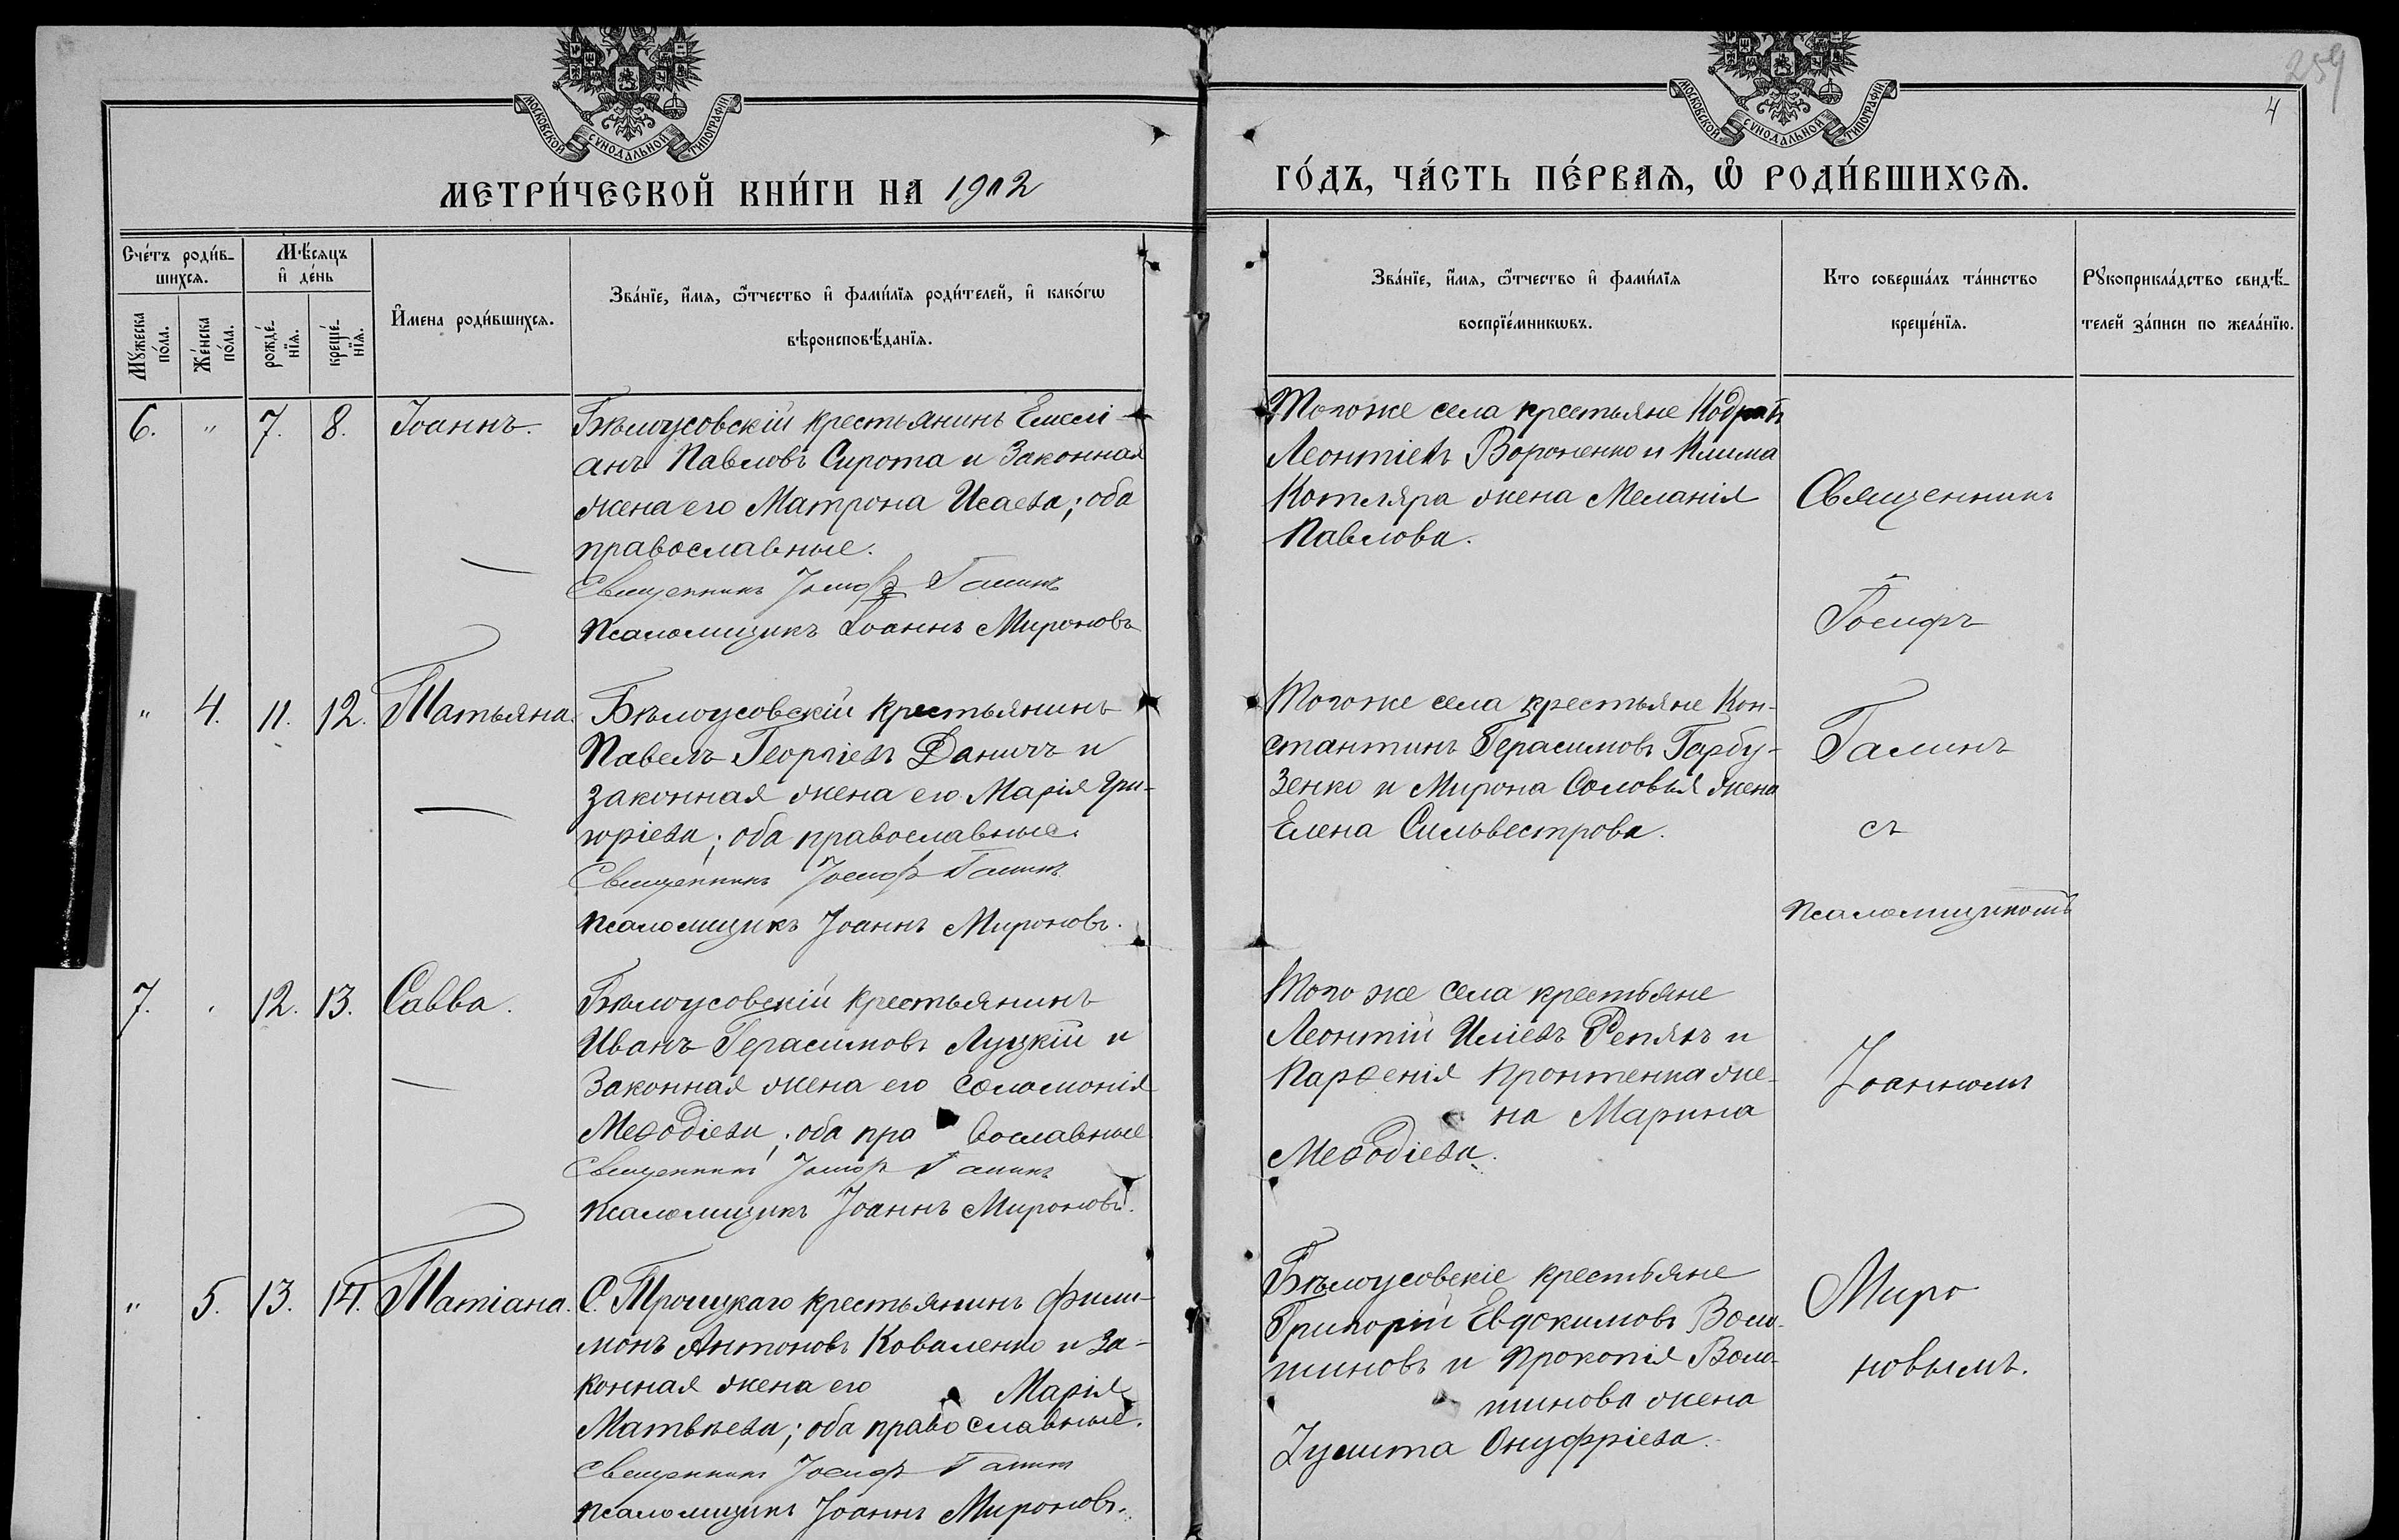 259
4
МОСКОВСКОЙ СУНОДАЛЬНОЙ ТИПОГРАФІИ
МОСКОВСКОЙ СУНОДАЛЬНОЙ ТИПОГРАФІИ
МЕТРИ́ЧЕСКОЙ КНИ́ГИ НА 1902
ГО́ДЪ, ЧА́СТЬ ПЕ́РВАѦ, Ѽ РОДИ́ВШИХСѦ.
Сче́тъ роди́в-
шихсѧ.
Мꙋ́жеска
по́ла.
Же́нска
по́ла.
Мѣ́сѧцъ
и҆ де́нь
рожде́-
нїѧ.
креще́-
нїѧ.
И҆мена роди́вшихсѧ.
Зва́нїе, и҆́мѧ, ѻ҆́тчество и҆ фами́лїѧ роди́телей, и҆ како́гѡ
вѣроисповѣ́данїѧ.
Зва́нїе, и҆́мѧ, ѻ҆́тчество и҆ фами́лїѧ
воспрїе́мникѡвъ.
Кто соверша́лъ та́инство
креще́нїѧ.
Рꙋкоприкла́дство свидѣ́-
телей за́писи по жела́нїю.
6. " 7. 8. Іоаннъ.
Бѣлоусовскій крестьянинъ Емелі-
анъ Павловъ Сирота и законная
жена его Матрона Исаева; оба
православные.
Священникъ Іосифъ Галинъ
Псаломщикъ Іоаннъ Мироновъ
Того же села крестьяне Кодратъ
Леонтіевъ Вороненко и Клима
Котляра жена Меланія
Павлова.
" 4. 11. 12. Татьяна.
Бѣлоусовскій крестьянинъ
Павелъ Георгіевъ Даничъ и
законная жена его Марія Гри-
горіева; оба православные.
Священникъ Іосифъ Галинъ
Псаломщикъ Іоаннъ Мироновъ.
Того же села крестьяне Кон-
стантинъ Герасимовъ Гарбу-
зенко и Мирона Соловья жена
Елена Сильвестрова.
7. " 12. 13. Савва.
Бѣлоусовскій крестьянинъ
Иванъ Герасимовъ Луцкій и
законная жена его Соломонія
Меѳодіева; оба православные
Священникъ Іосифъ Галинъ
Псаломщикъ Іоаннъ Мироновъ.
Того же села крестьяне
Леонтій Иліевъ Репяхъ и
Парѳенія Кронтенка же-
на Марина
Меѳодіева.
" 5. 13. 14. Татіана.
С. Троицкаго крестьянинъ Фили-
монъ Антоновъ Коваленко и за-
конная жена его Марія
Матвѣева; оба православные.
Священникъ Іосифъ Галинъ
Псаломщикъ Іоаннъ Мироновъ.
Бѣлоусовскіе крестьяне
Григорій Евдокимовъ Воло-
шиновъ и Прокопія Воло-
шинова жена
Іулита Онуфріева.
Священникъ
Іосифъ
Галинъ
съ
псаломщикомъ
Іоанномъ
Миро
новымъ.